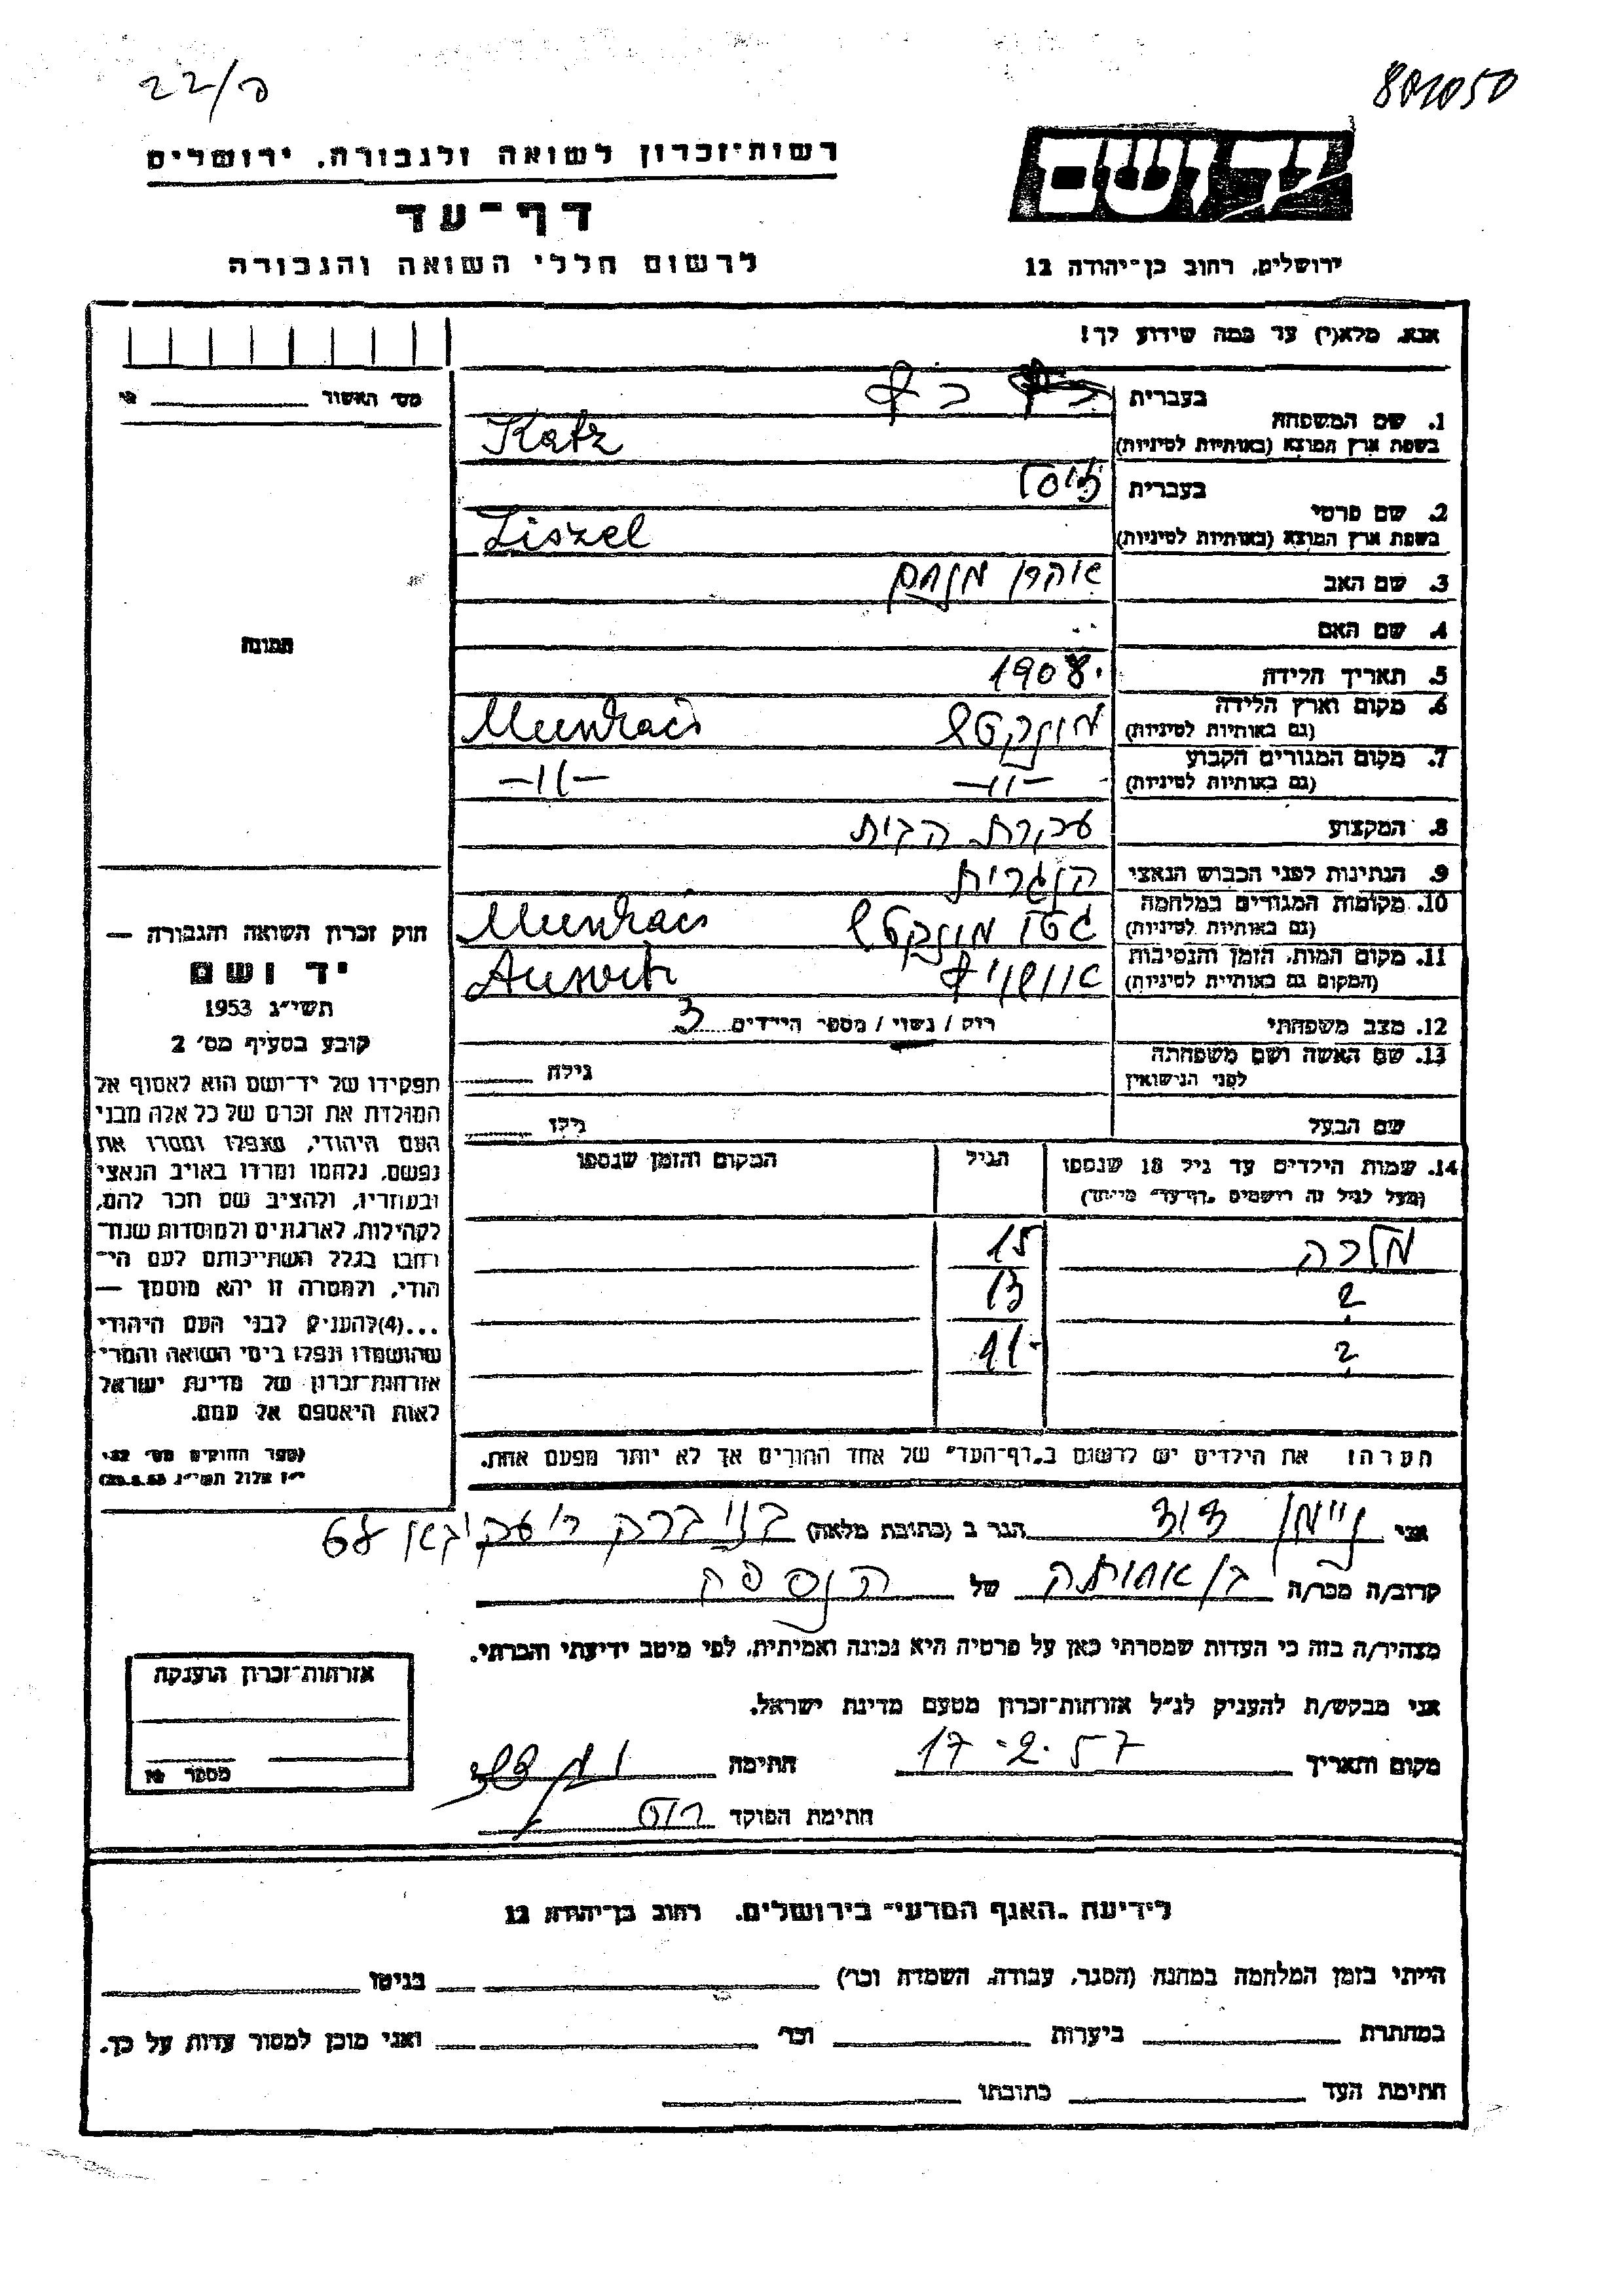 22/ס
801050
רשות־זכרון לשואה ולגבורה, ירושלים
יד ושם
דף־עד
לרשום חללי השואה והגבורה
ירושלים, רחוב בן־יהודה 12
אנא, מלא(י) עד כמה שידוע לך!
מס׳ האשור
תמונה
1. שם המשפחה
בעברית כץ
בשפת ארץ המוצא (באותיות לטיניות) Katz
2. שם פרטי
בעברית
בשפת ארץ המוצא (באותיות לטיניות) Liszel
3. שם האב אהרן מנחם
4. שם האם
5. תאריך הלידה 1908
6. מקום וארץ הלידה
(גם באותיות לטיניות) מונקטש Munkacs
7. מקום המגורים הקבוע
(גם באותיות לטיניות) -״- -״-
8. המקצוע עקרת הבית
9. הנתינות לפני הכבוש הנאצי הונגרית
10. מקומות המגורים במלחמה
(גם באותיות לטיניות) גטו מונקטש Munkacs
11. מקום המות, הזמן והנסיבות
(המקום גם באותיות לטיניות) אושוויץ
12. מצב משפחתי רוק / נשוי / מספר הילדים 3
13. שם האשה ושם משפחתה
לפני הנישואין
גילה
שם הבעל
גילו
14. שמות הילדים עד גיל 18 שנספו
(מעל לגיל זה רושמים „דף־עד״ מיוחד)
הגיל
המקום והזמן שנספו
מלכה 15
? 13
? 11
הערה: את הילדים יש לרשום ב„דף־העד״ של אחד ההורים אך לא יותר מפעם אחת.
חוק זכרון השואה והגבורה —
יד ושם
תשי״ג 1953
קובע בסעיף מס׳ 2
תפקידו של יד־ושם הוא לאסוף אל
המולדת את זכרם של כל אלה מבני
העם היהודי, שנפלו ומסרו את
נפשם, נלחמו ומרדו באויב הנאצי
ובעוזריו, ולהציב שם וזכר להם,
לקהילות, לארגונים ולמוסדות שנח־
רחבו בגלל השתייכותם לעם הי־
הודי, ולמטרה זו יהא מוסמך —
...(4)להעניק לבני העם היהודי
שהושמדו ונפלו בימי השואה והמרי
אזרחות־זכרון של מדינת ישראל
לאות היאספם אל עמם.
(ספר החוקים מס׳ 132
י״ז אלול תשי״ג 28.8.53)
אני ניימן דוד הגר ב (כתובת מלאה) בני ברק ר׳ עקיבא 68
קרוב/ה מכר/ה בן אחותה של הנספה
מצהיר/ה בזה כי העדות שמסרתי כאן על פרטיה היא נכונה ואמיתית, לפי מיטב ידיעתי והכרתי.
אני מבקש/ת להעניק לנ״ל אזרחות־זכרון מטעם מדינת ישראל.
מקום ותאריך 17-2.57 חתימה
חתימת הפוקד
אזרחות־זכרון הוענקה
מספר
לידיעת „האגף המדעי״ בירושלים, רחוב בן־יהודה 12
הייתי בזמן המלחמה במחנה (הסגר, עבודה, השמדה וכו׳) בגיטו
במחתרת ביערות וכו׳ ואני מוכן למסור עדות על כך.
חתימת העד כתובתו